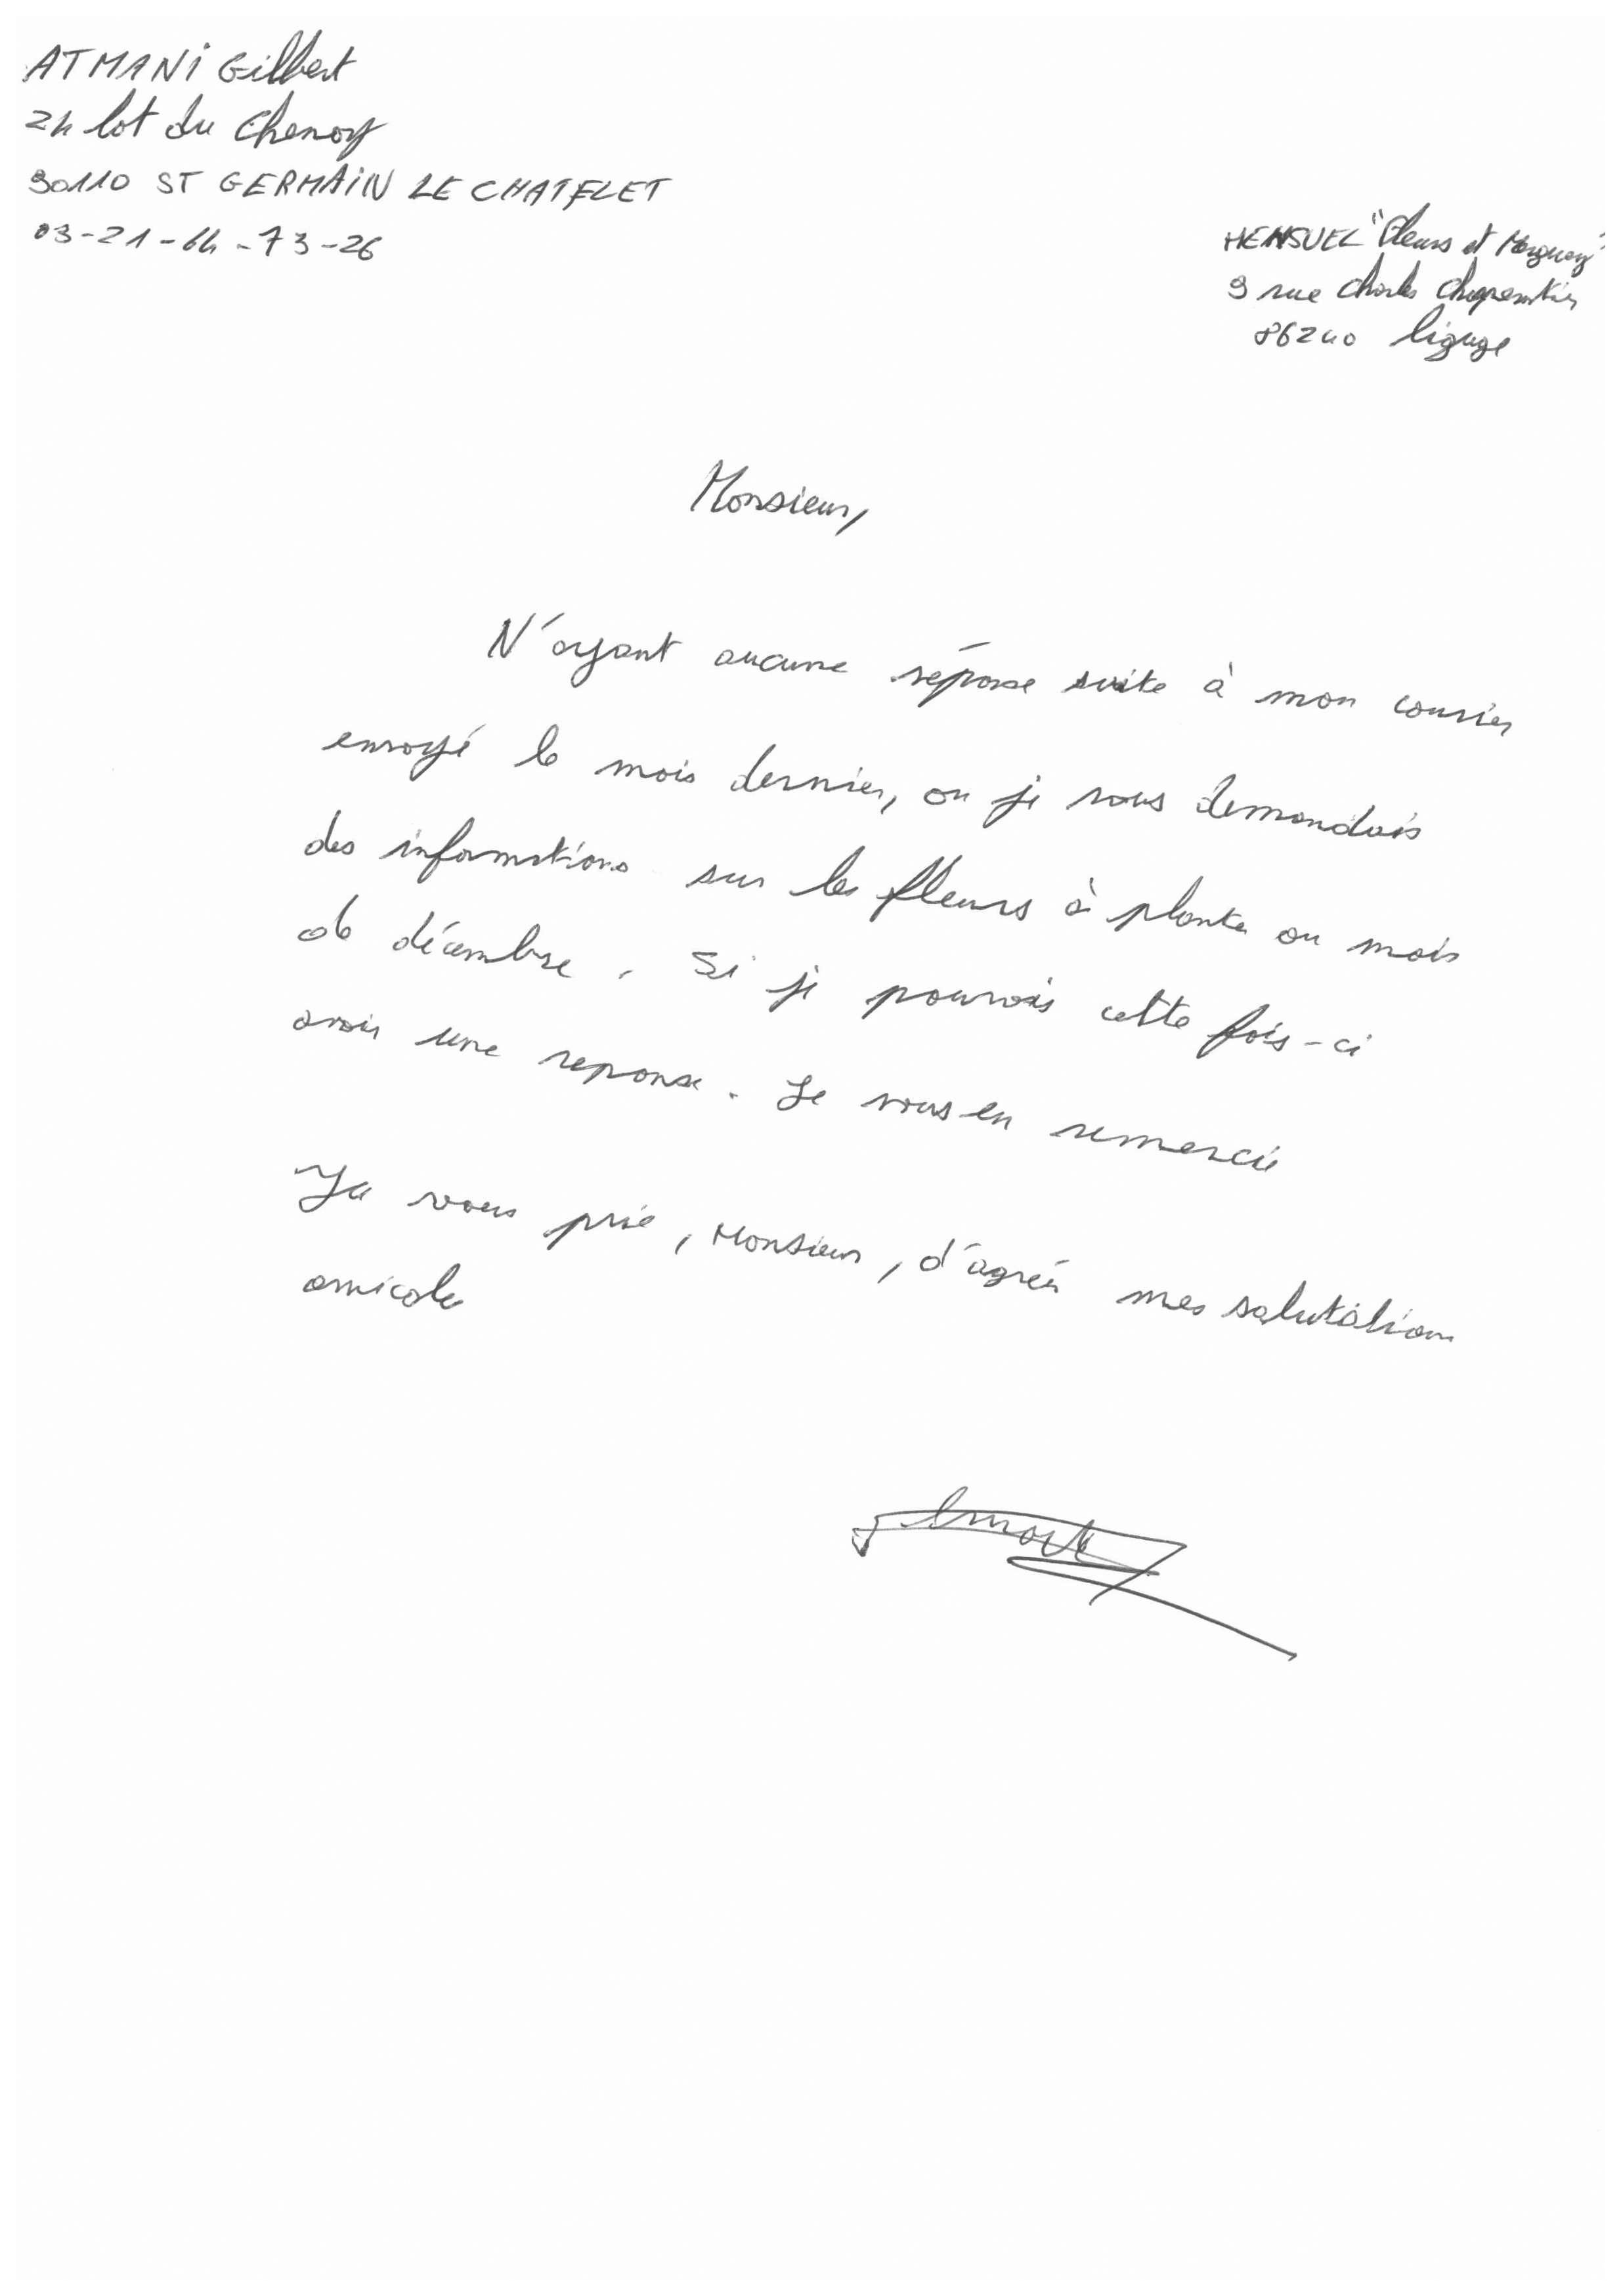 ATMANI Gilbert
24 lot du Chenoy
90110 ST GERMAIN LE CHATELET
03-21-64-73-26
MENSUEL "Fleurs et
9 rue Charles Charpentier
86240 ligugé
Monsieur,
N'ayant aucune réponse suite à mon courier
envoyé le mois dernier, ou je vous demandais
des informations sur les fleurs à planter au mois
de décembre. Si je pourrais cette fois-ci
avoir une reponse. Je vous en remercie
Je vous prie, Monsieur, d'agréer mes salutations
amicales